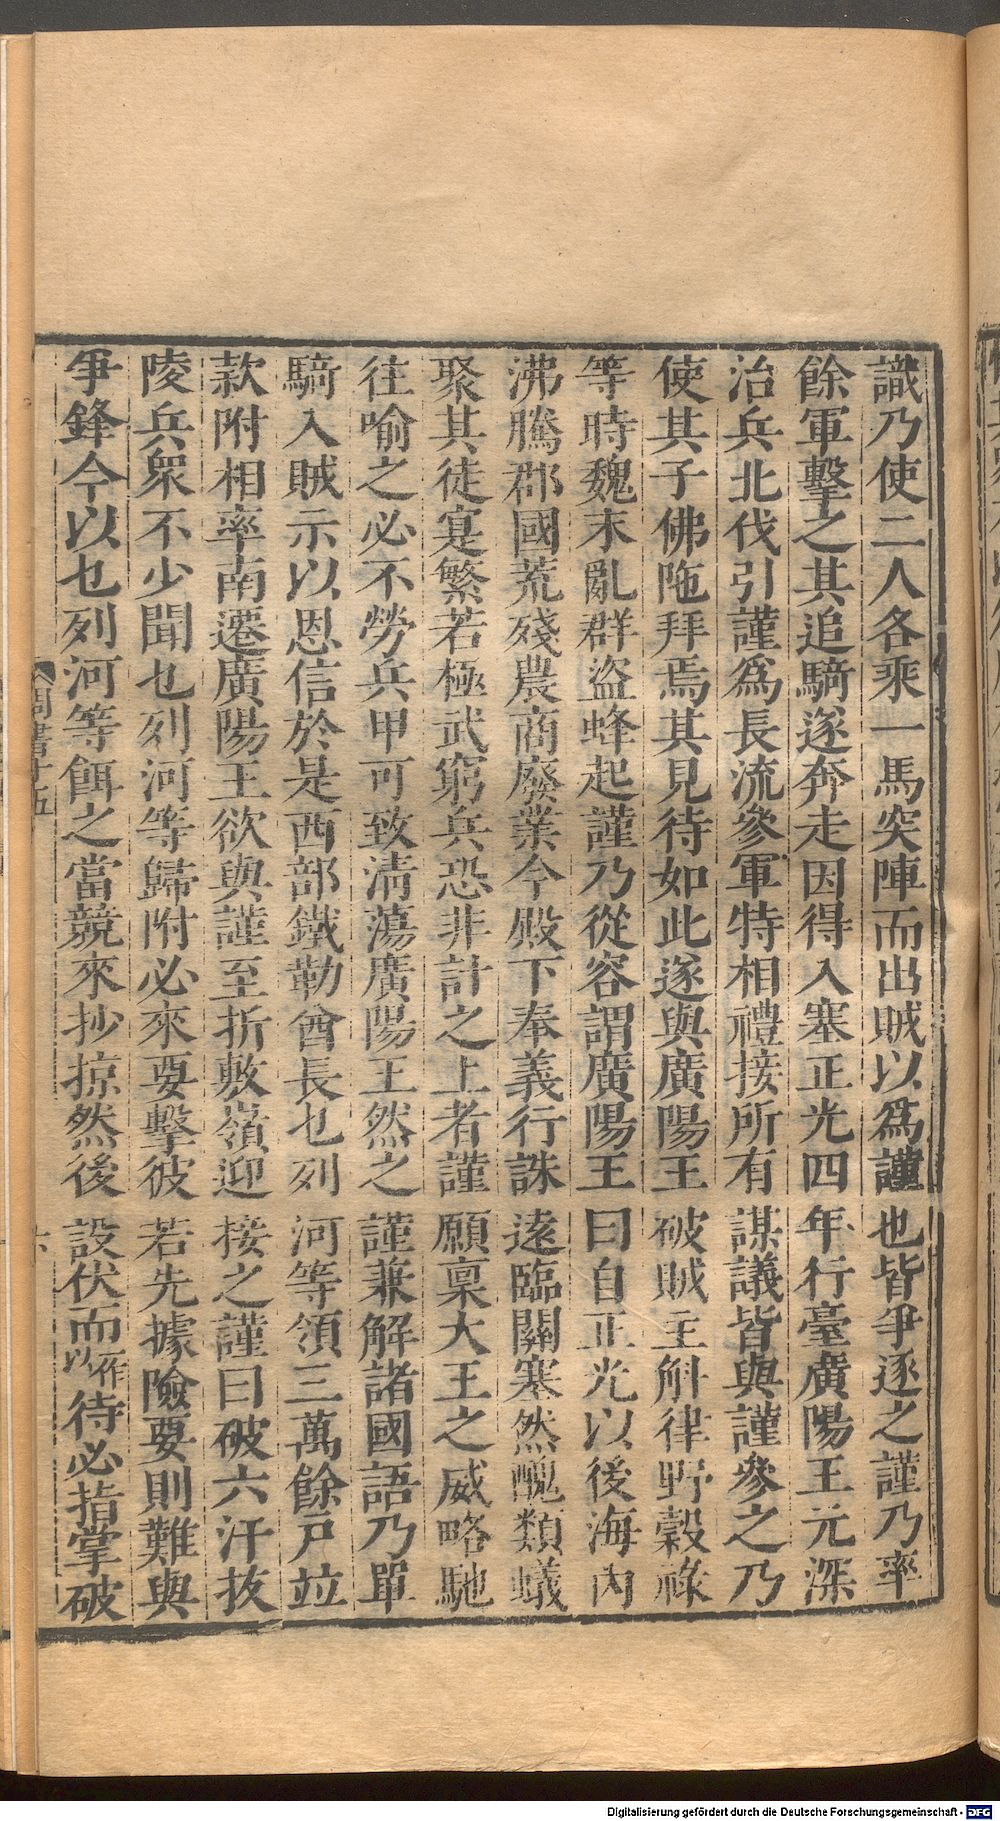 識乃使二人各乘一馬突陣而出賊以爲謹也皆爭逐之謹乃率
餘軍擊之其追騎遂奔走因得入塞正光四年行臺廣陽王元深
治兵北伐引謹爲長流參軍特相禮接所有謀議皆與謹參之乃
使其子佛陁拜焉其見待如此遂與廣陽王破賊主斛律野穀祿
等時魏末亂群盜蜂起謹乃從容謂廣陽王曰自正光以後海內
沸騰郡國荒殘農商廢業今殿下奉義行誅遠臨關塞然醜類蟻
聚其徒寔繁若極武窮兵恐非計之上者謹願稟大王之威略馳
往喻之必不勞兵甲可致淸蕩廣陽王然之謹兼解諸國語乃單
騎入賊示以恩信於是西部鐵勒酋長乜列河等領三萬餘戶竝
款附相率南遷廣陽王欲與謹至折敷嶺迎接之謹曰破六汗拔
陵兵衆不少聞乜列河等歸附必來要擊彼若先據險要則難與
爭鋒今以乜列河等餌之當競來抄掠然後設伏而以作待必指掌破
周書十五
六
Digitalisierung gefördert durch die Deutsche Forschungsgemeinschaft - DFG